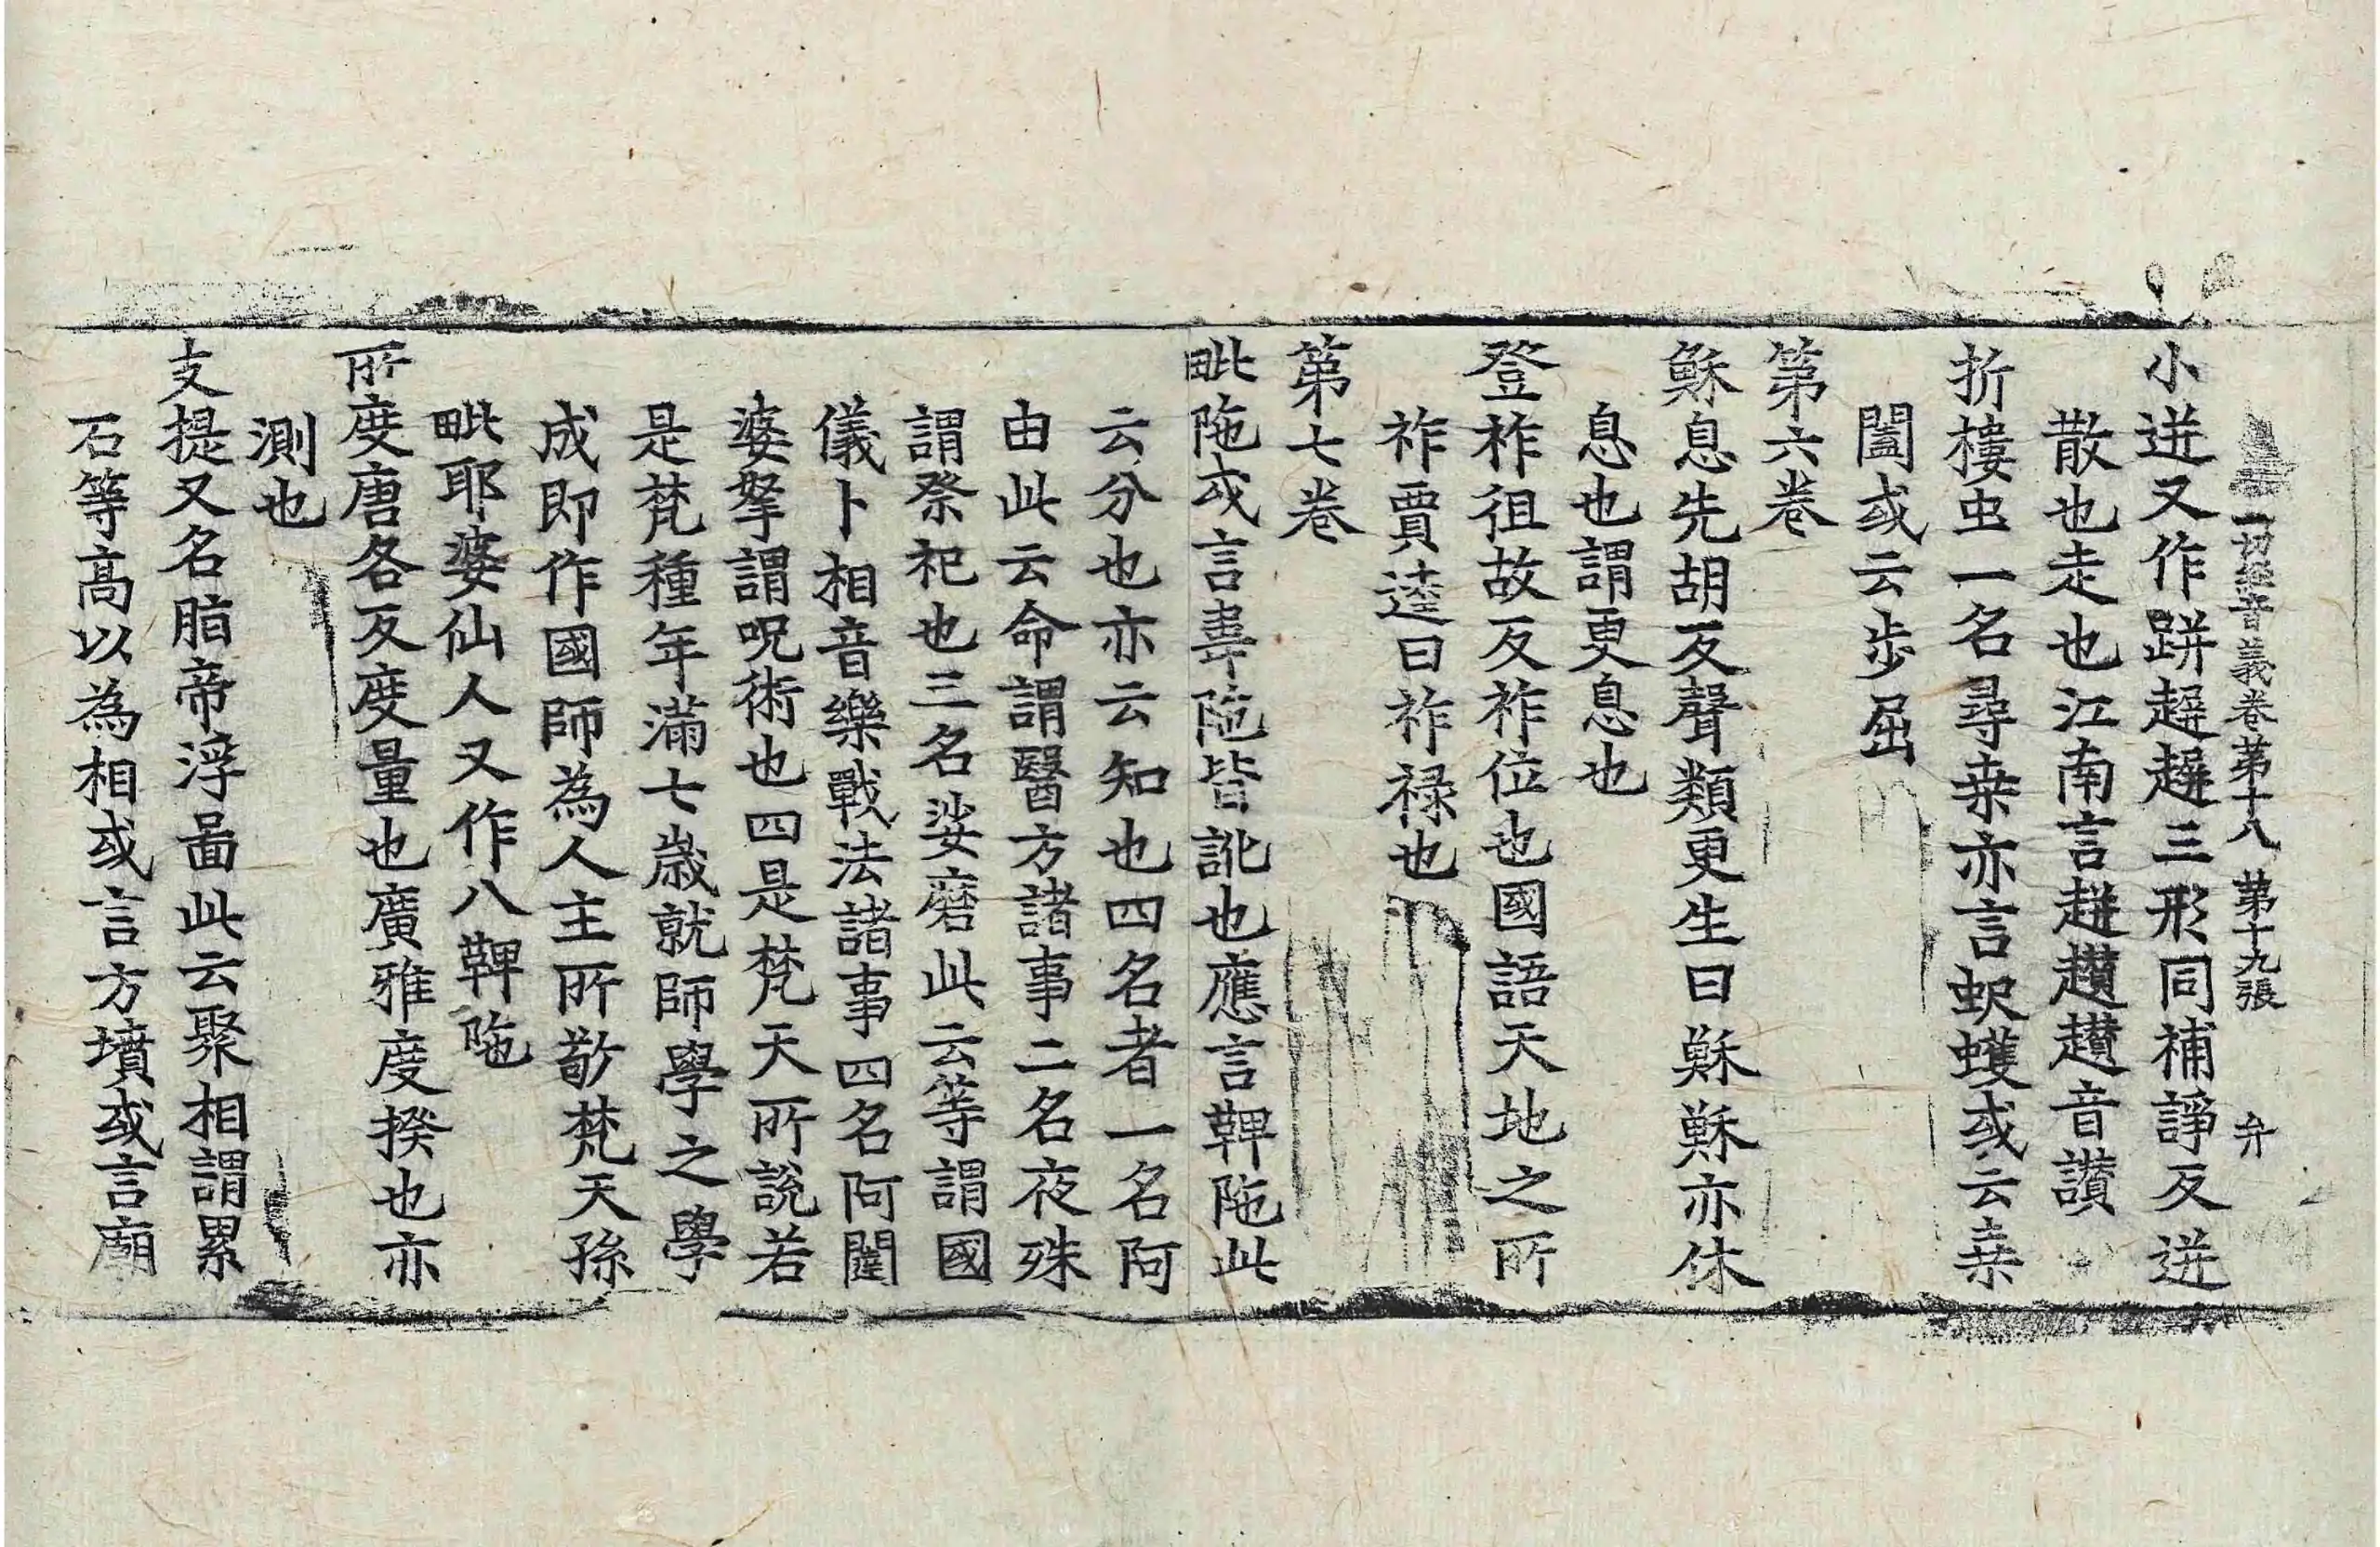 一切經音義卷第十八 第十九張 弁
小迸又作跰趯趯三形同補諍反迸
散也走也江南言趯趲趲音讃
折樓虫一名尋桒亦言蚇蠖或云桒
闔或云步屈
第六卷
穌息先胡反聲類更生曰穌穌亦休
息也謂更息也
登祚徂故反祚位也國語天地之所
祚賈逵曰祚禄也
第七卷
毗陁或言韋陁皆訛也應言鞞陁此
云分也亦云知也四名者一名阿
由此云命謂醫方諸事二名夜殊
謂祭祀也三名娑磨此云等謂國
儀卜相音樂戰法諸事四名阿闥
婆拏謂呪術也四是梵天所說若
是梵種年滿七歲就師學之學
成即作國師為人主所敬梵天孫
毗耶婆仙人又作八鞞陁
所度唐各反度量也廣雅度揆也亦
測也
支提又名脂帝浮啚此云聚相謂累
石等高以為相或言方墳或言廟